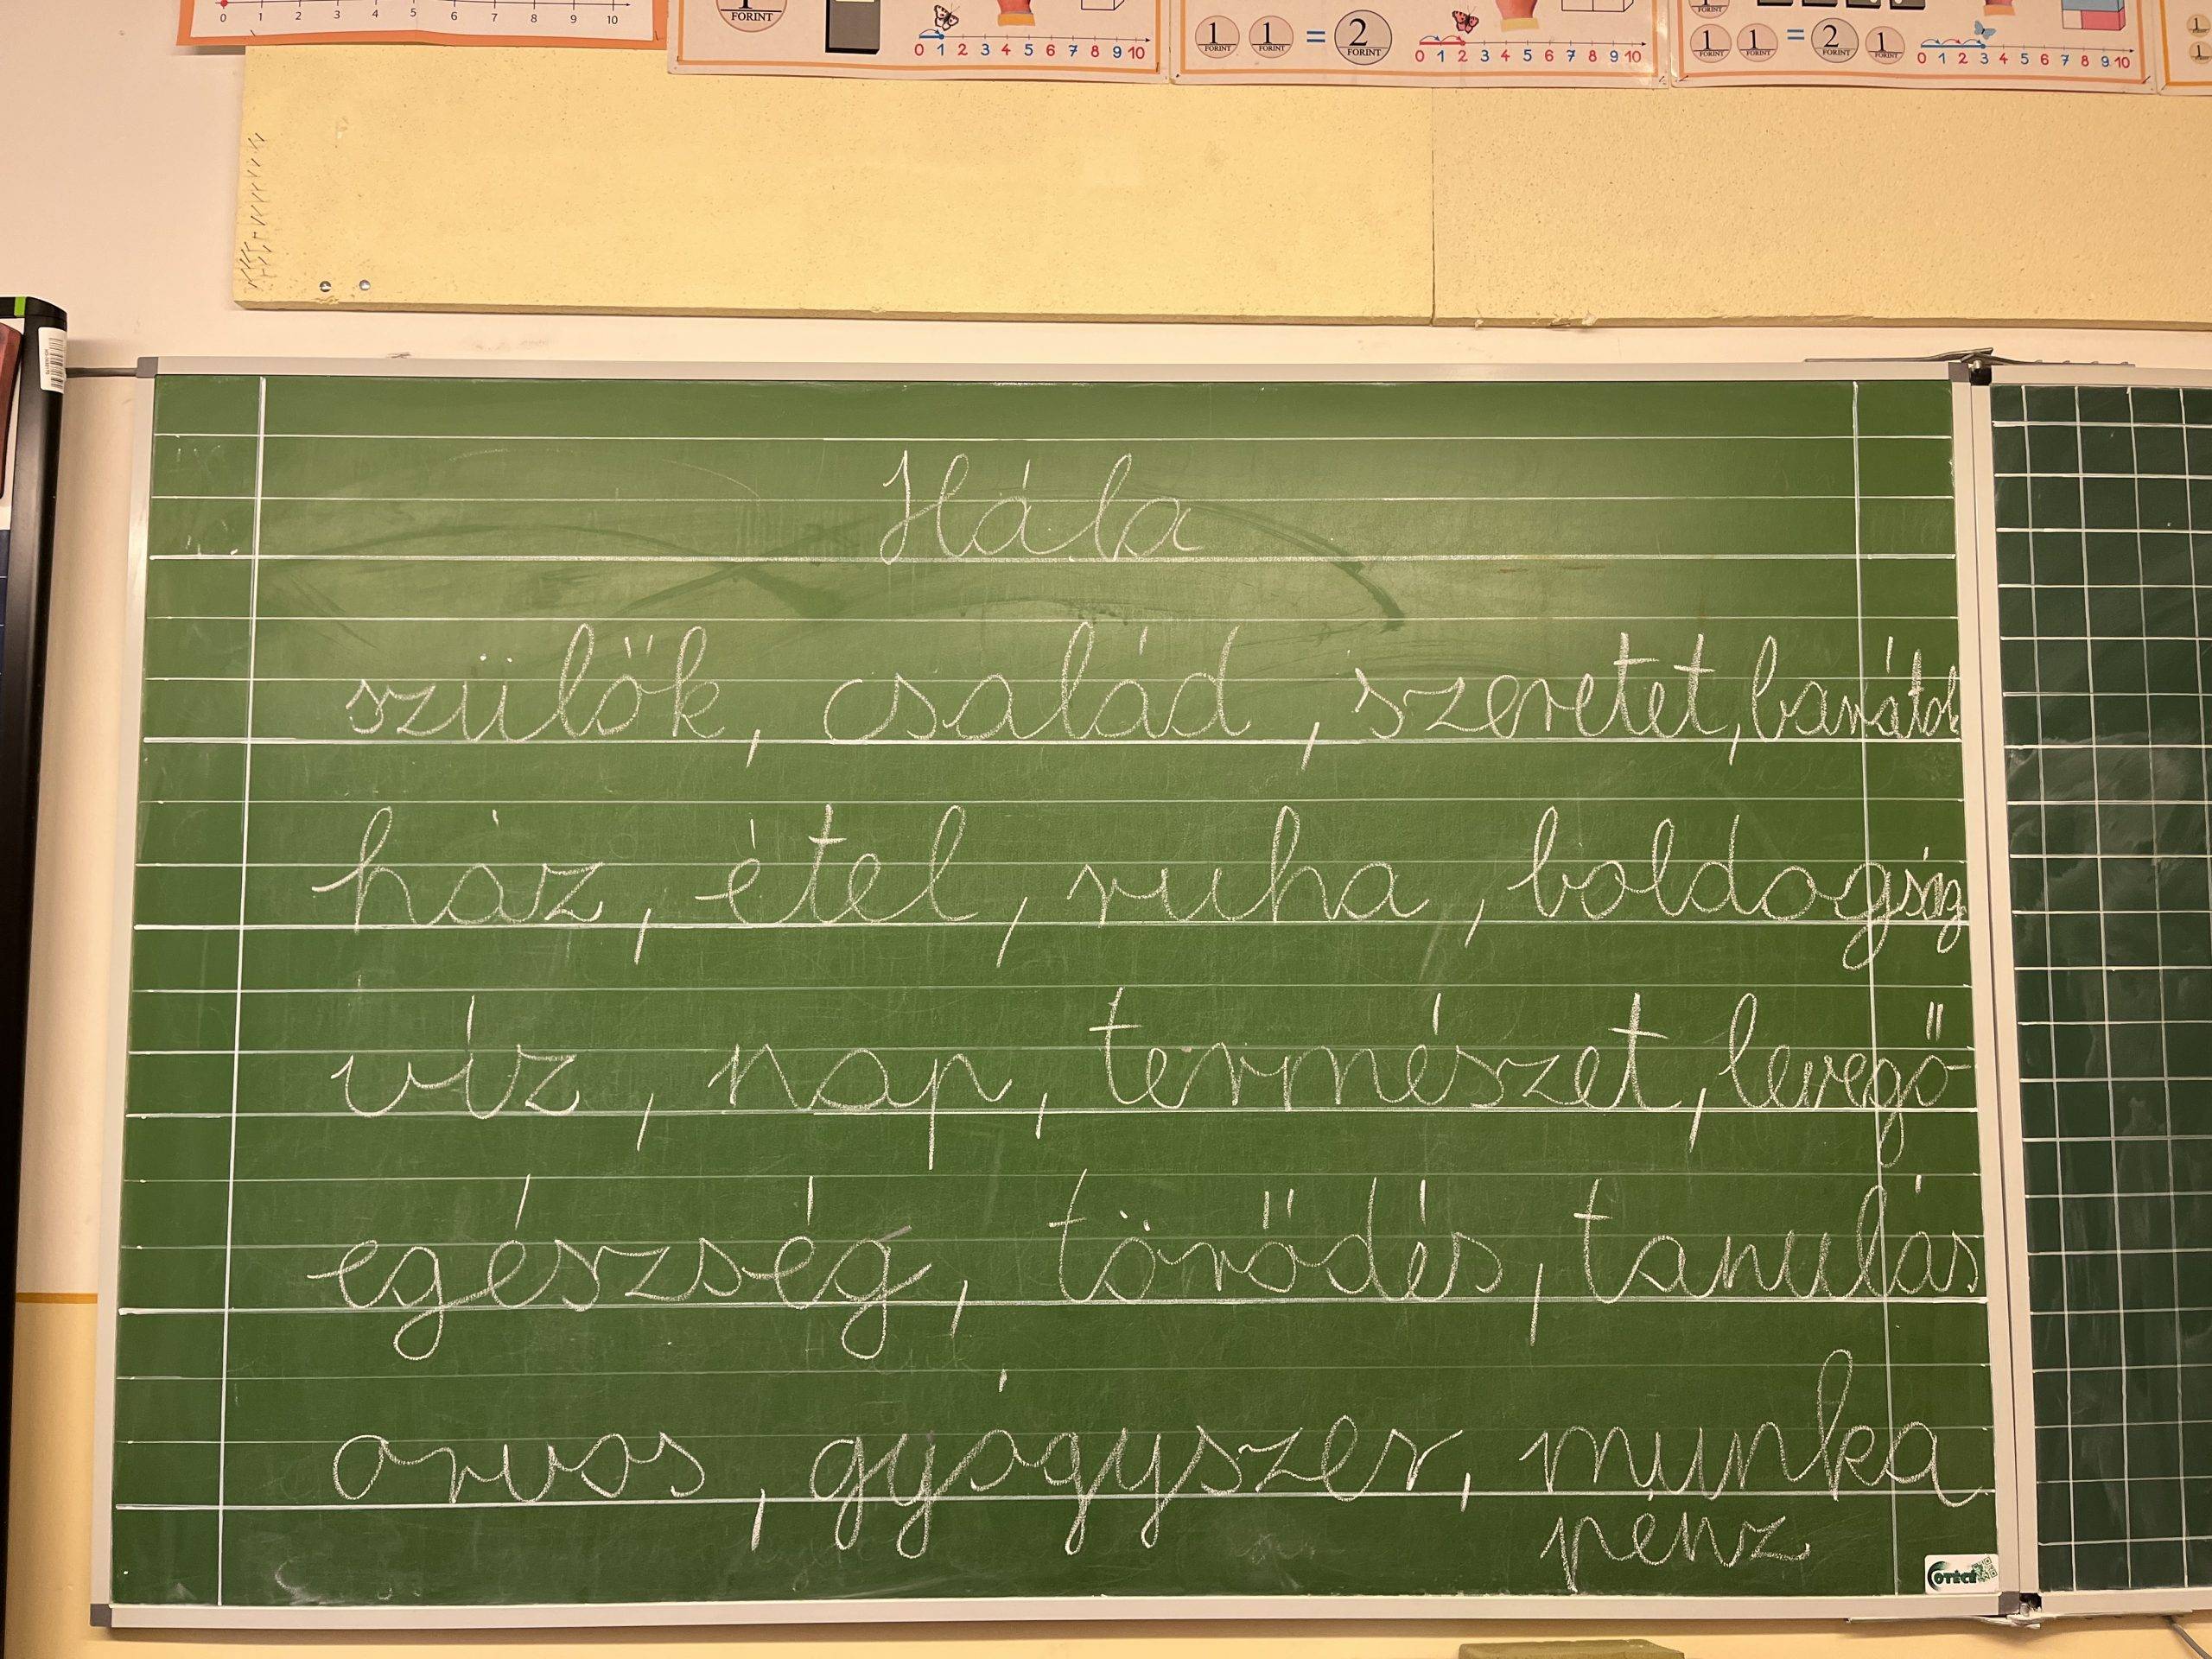 0 1 2 3 4 5 6 7 8 9 10
1 FORINT
0 1 2 3 4 5 6 7 8 9 10
1 FORINT 1 FORINT = 2 FORINT
0 1 2 3 4 5 6 7 8 9 10
1 FORINT 1 FORINT = 2 FORINT 1 FORINT
0 1 2 3 4 5 6 7 8 9 10
Hála
szülők, család, szeretet, barátok
ház, étel, ruha, boldogság
víz, nap, természet, levegő
egészség, törődés, tanulás
orvos, gyógyszer, munka
pénz